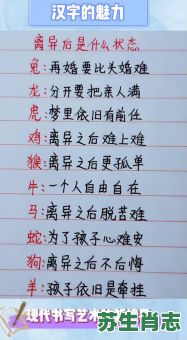 汉字的魅力
离异后是什么状态
兔:再婚要比头婚难
龙:分开要把亲人满
虎:梦里依旧有前任
鸡:离异之后难上难
猴:离异之后更孤单
牛:一个人自由自在
马:离异之后脱苦难
蛇:为了孩子心难安
狗:离异之后不后悔
羊:孩子依旧是牵挂
现代书写艺术
苏生肖志